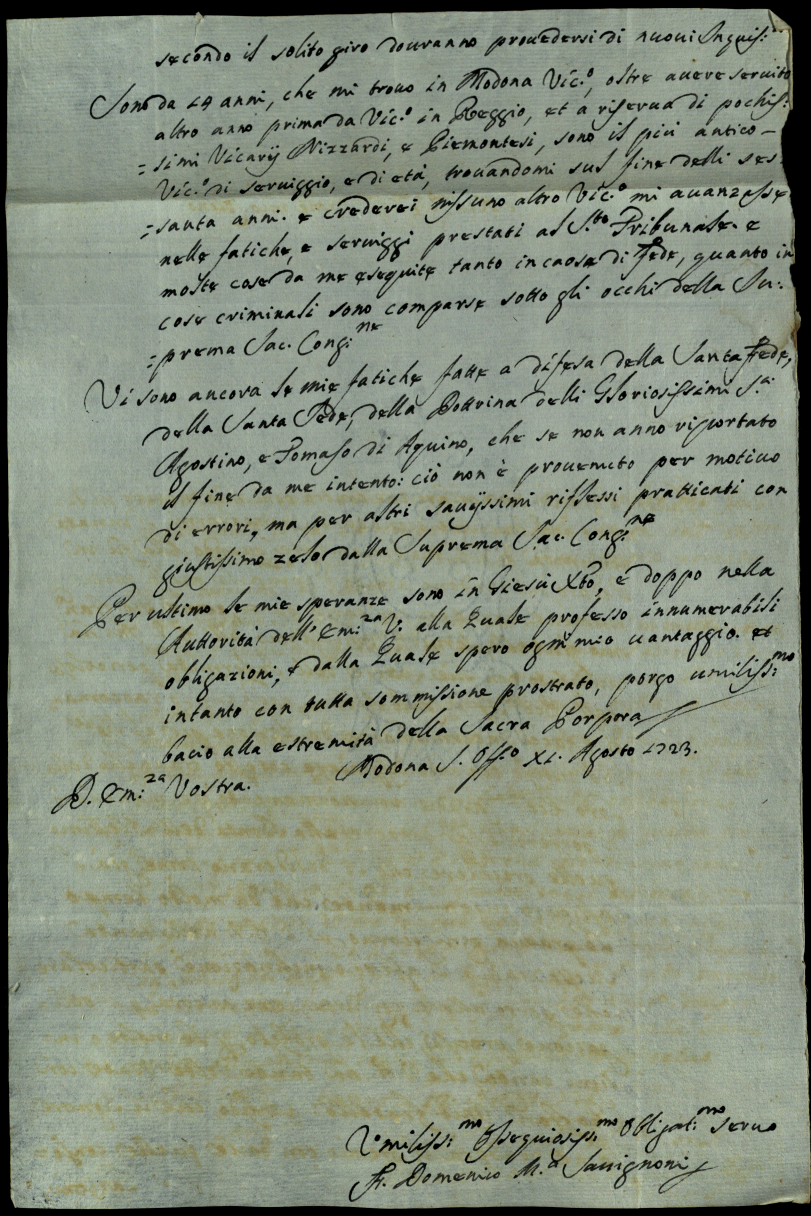 secondo il solito giro dovranno provedersi di nuovi Inquis:ri
Sono da 14 anni, che mi trovo in Modona Vic.º, oltre avere servito
altro anno prima da Vic.º in Reggio, et a riserva di pochis:
=simi Vicarij Nizzardi, e Piemontesi, sono il più antico
Vic.º di serviggio, e di età, trovandomi sul fine delli ses:
=santa anni. e crederei nissuno altro Vic.º mi avanzesse
nelle fatiche, e serviggi prestati al S.to Tribunale. e
molte cose da me eseguite tanto in caosa di Fede, quanto in
cose criminali sono comparse sotto gli occhi della Su:
=prema Sac. Cong:ne
Vi sono ancora le mie fatiche fatte a difesa della Santa Fede,
della Santa Sede, della Dottrina delli Gloriosissimi S.ti
Agostino, e Tomaso di Aquino, che se non anno riportato
il fine da me intento: ciò non è provenuto per motivo
di errori, ma per altri savijssimi riflessi pratticati con
giustissimo zelo dalla Suprema Sac. Cong:ne
Per ultimo le mie speranze sono in Giesù Xpto, e doppo nella
Auttorità dell'Em:za V: alla quale professo innumerabili
obligazioni, e dalla quale spero ogni mio vantaggio. et
intanto con tutta sommissione prostrato, porgo umiliss:mo
bacio alla estremità della Sacra Porpora
Modona S. Off.o XI. Agosto 1723.
D. Em:za Vostra.
Vmiliss:mo Ossequiosiss:mo Obligat:mo servo
Fr. Domenico M.a Savignoni